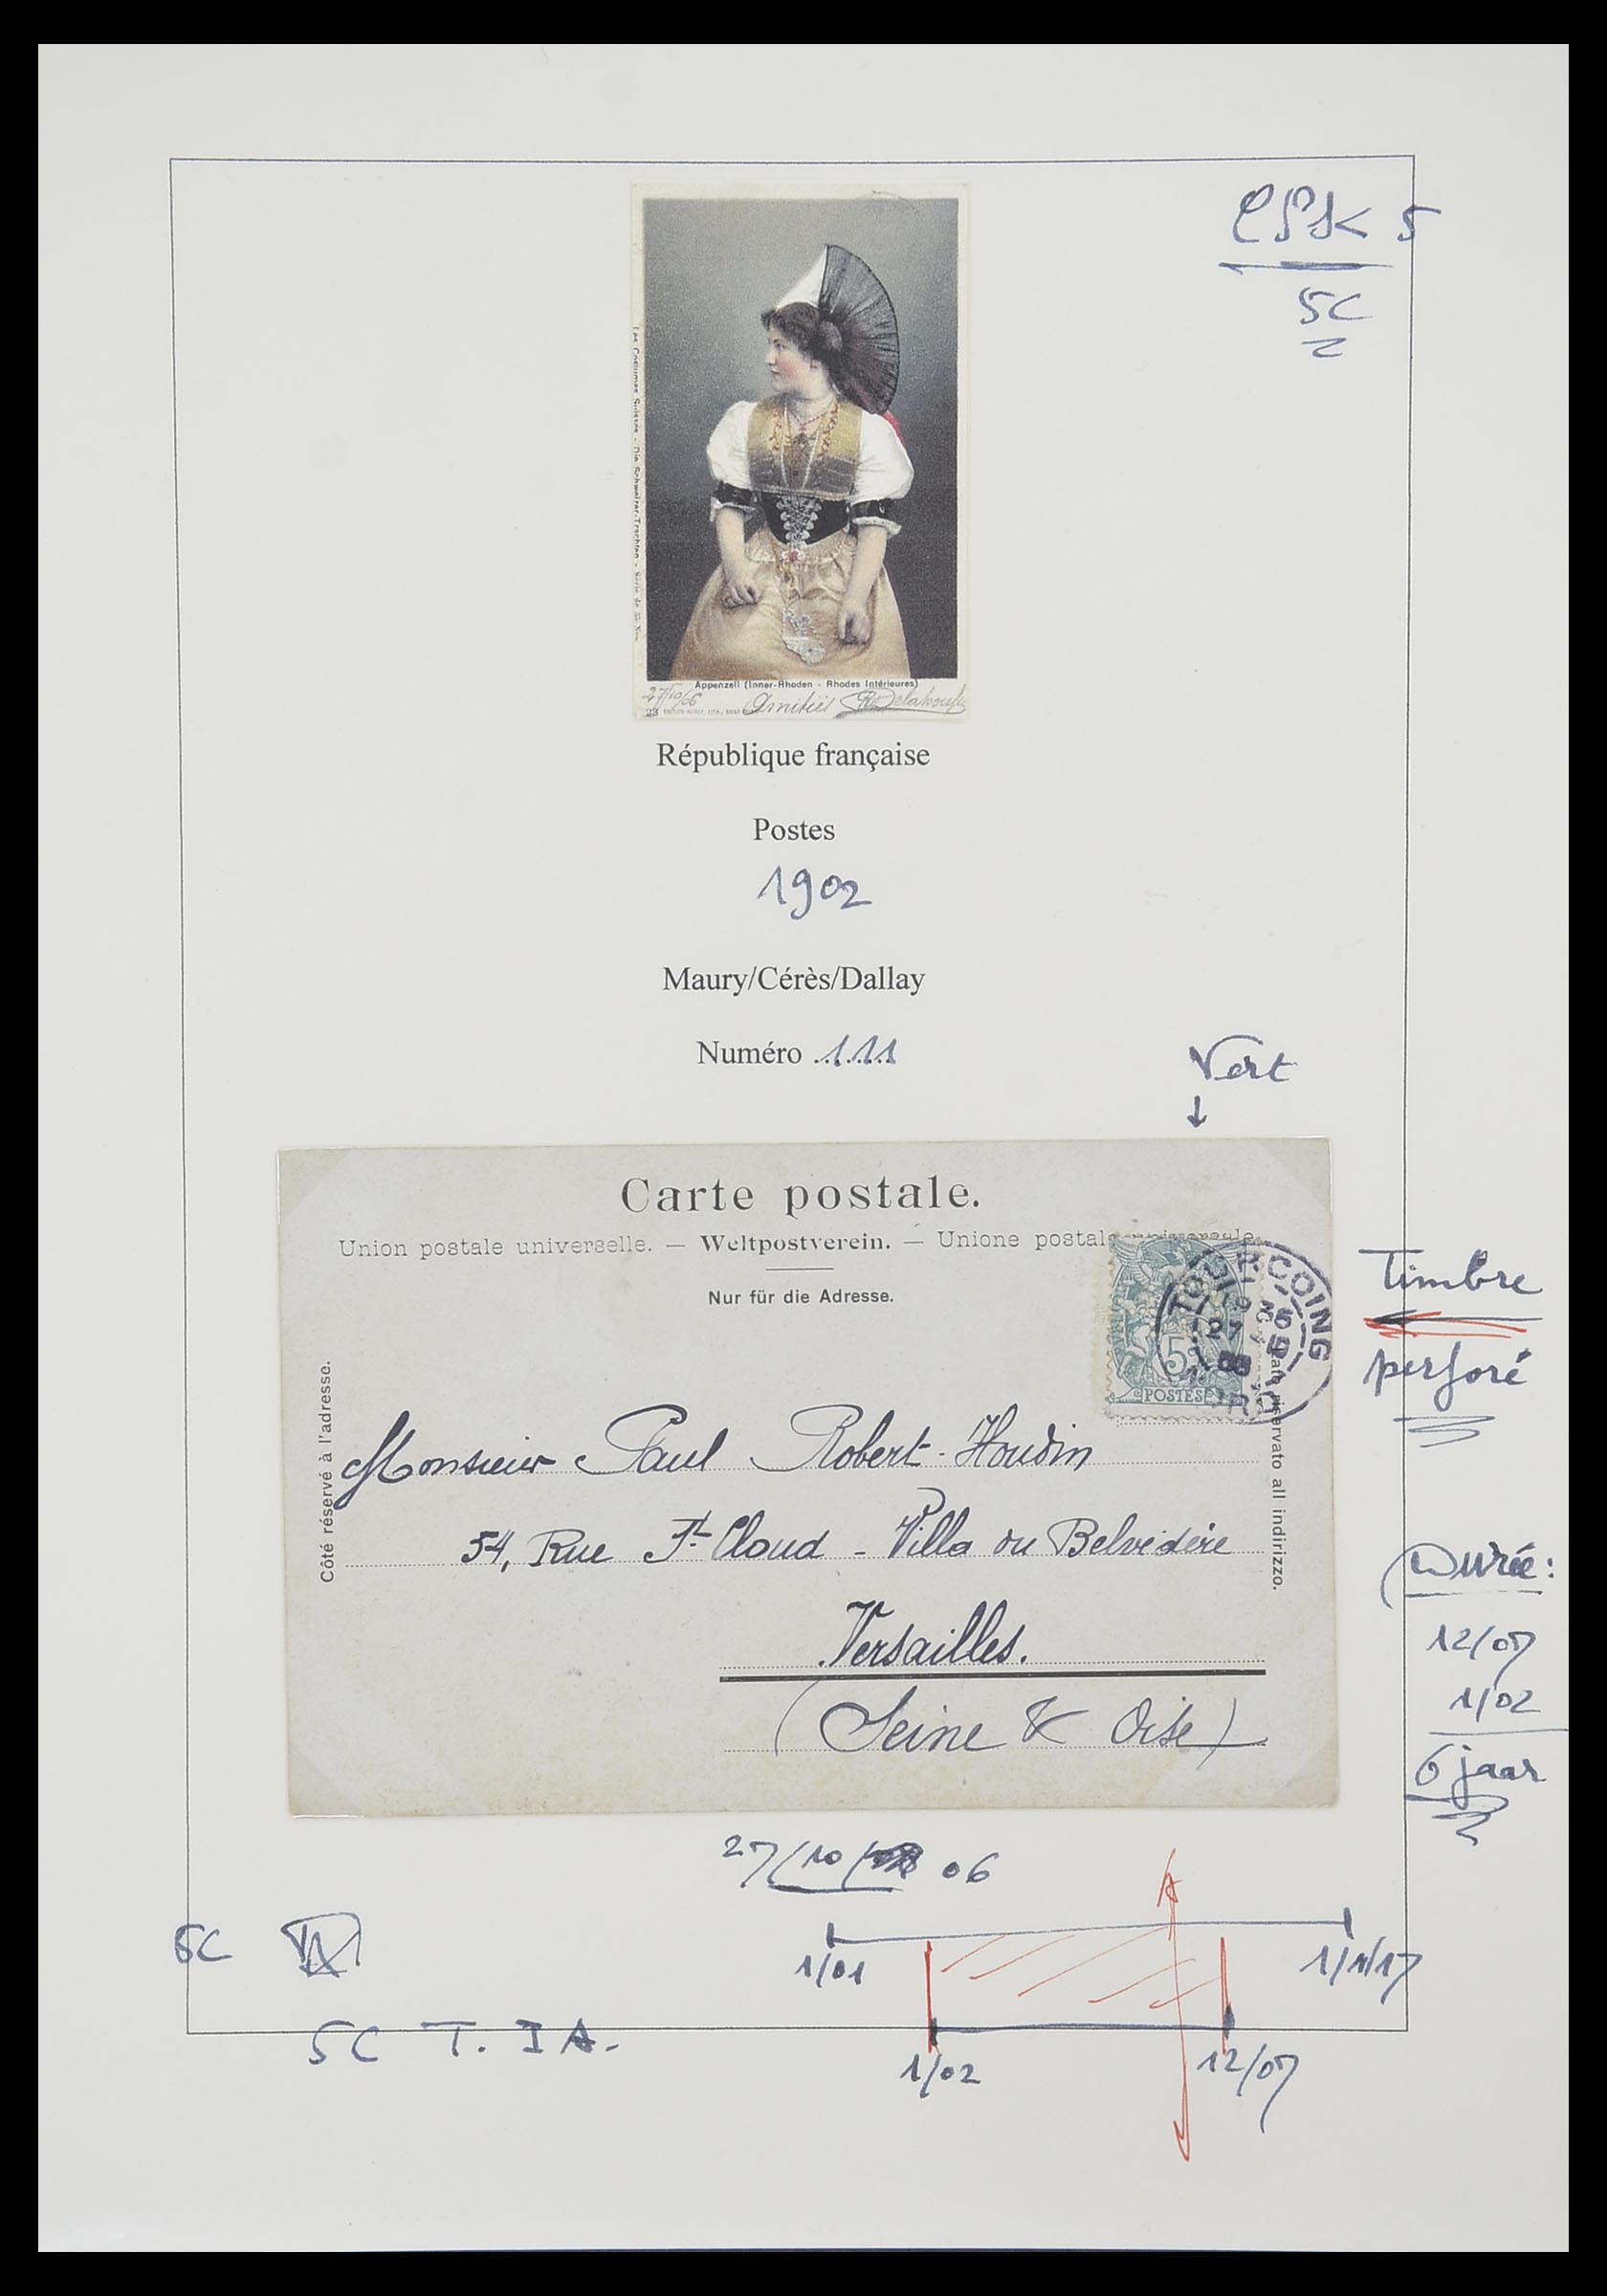 CPSK 5
5C
Les Costumes Suisses - Die Schweizer-Trachten - Série de
Appenzell (Inner-Rhoden - Rhodes Intérieures)
27/10/06 Amitiés Delahousse
23
République française
Postes
1902
Maury/Cérès/Dallay
Numéro 111
Vert
Carte postale.
Union postale universelle. — Weltpostverein. — Unione postale universale.
Nur für die Adresse.
Côté réservé à l'adresse.
Lato riservato all indirizzo.
TOURCOING
27
POSTES
5c
Timbre
perforé
Monsieur Paul Robert-Houdin
54, Rue St Cloud - Villa du Belvédère
Versailles.
(Seine & Oise)
Durée:
12/07
1/02
6 jaar
27/10/ 06
5C
1/01
1/1/17
5C T. IA.
1/02
12/07